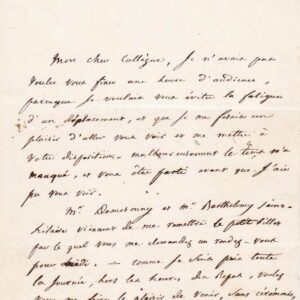 Mon cher Collègue, je n'avais pas
voulu vous fixer une heure d'audience,
parceque je voulais vous éviter la fatigue
d'un déplacement, et que je me faisais un
plaisir d'aller vous voir et me mettre à
votre disposition. malheureusement le tems m'a
manqué, et vous être parti avant que j'aie
pu vous voir.
Mr. Demesmay et Mr. Barthelemy Saint-
hilaire viennent de me remettre le petit billet
par le quel vous me demandez un rendez-vous
pour — comme je suis pris toute
la journée, hors les heures du Repas, voulez
vous me faire le plaisir de venir, sans cérémonie,